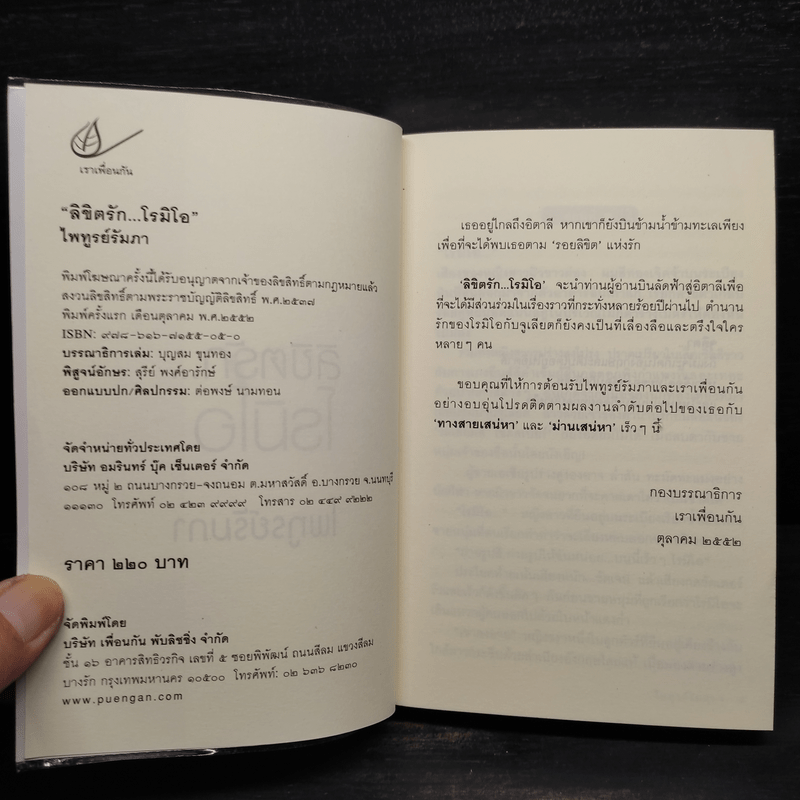 เราเพื่อนกัน
"ลิขิตรัก...โรมิโอ"
ไพทูรย์รัมภา
พิมพ์โฆษณาครั้งนี้ได้รับอนุญาตจากเจ้าของลิขสิทธิ์ตามกฎหมายแล้ว
สงวนลิขสิทธิ์ตามพระราชบัญญัติลิขสิทธิ์ พ.ศ.๒๕๓๗
พิมพ์ครั้งแรก เดือนตุลาคม พ.ศ.๒๕๕๒
ISBN: ๙๗๘-๖๑๖-๗๑๕๕-๐๕-๐
บรรณาธิการเล่ม: บุญสม ขุนทอง
พิสูจน์อักษร: สุรีย์ พงศ์อารักษ์
ออกแบบปก/ศิลปกรรม: ต่อพงษ์ นามทอน
จัดจำหน่ายทั่วประเทศโดย
บริษัท อมรินทร์ บุ๊ค เซ็นเตอร์ จำกัด
๑๐๘ หมู่ ๒ ถนนบางกรวย-จงถนอม ต.มหาสวัสดิ์ อ.บางกรวย จ.นนทบุรี
๑๑๑๓๐ โทรศัพท์ ๐๒ ๔๒๓ ๙๙๙๙ โทรสาร ๐๒ ๔๔๙ ๙๒๒๒
ราคา ๒๒๐ บาท
จัดพิมพ์โดย
บริษัท เพื่อนกัน พับลิชชิ่ง จำกัด
ชั้น ๑๖ อาคารสิทธิวรกิจ เลขที่ ๕ ซอยพิพัฒน์ ถนนสีลม แขวงสีลม
บางรัก กรุงเทพมหานคร ๑๐๕๐๐ โทรศัพท์: ๐๒ ๖๓๖ ๘๒๓๐
www.puengan.com
เธออยู่ไกลถึงอิตาลี หากเขาก็ยังบินข้ามน้ำข้ามทะเลเพียง
เพื่อที่จะได้พบเธอตาม 'รอยลิขิต' แห่งรัก
'ลิขิตรัก...โรมิโอ' จะนำท่านผู้อ่านบินลัดฟ้าสู่อิตาลีเพื่อ
ที่จะได้มีส่วนร่วมในเรื่องราวที่กระทั่งหลายร้อยปีผ่านไป ตำนาน
รักของโรมิโอกับจูเลียตก็ยังคงเป็นที่เลื่องลือและตรึงใจใคร
หลายๆ คน
ขอบคุณที่ให้การต้อนรับไพทูรย์รัมภาและเราเพื่อนกัน
อย่างอบอุ่นโปรดติดตามผลงานลำดับต่อไปของเธอกับ
'ทางสายเสน่หา' และ 'ม่านเสน่หา' เร็วๆ นี้
กองบรรณาธิการ
เราเพื่อนกัน
ตุลาคม ๒๕๕๒